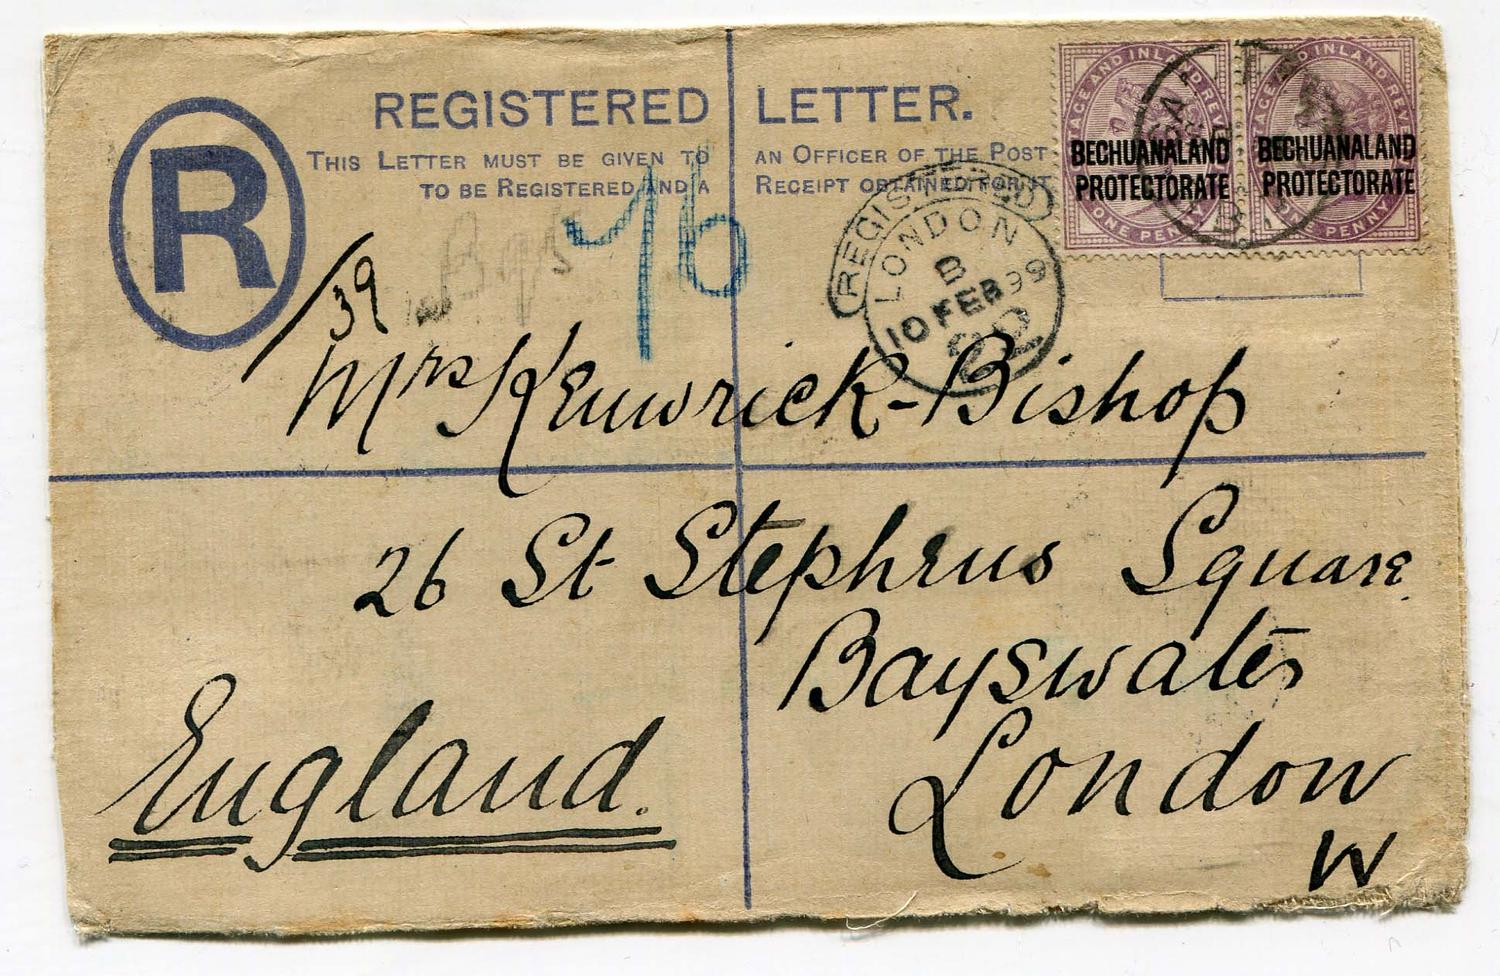 REGISTERED LETTER.
THIS LETTER MUST BE GIVEN TO AN OFFICER OF THE POST
TO BE REGISTERED AND A RECEIPT OBTAINED FOR IT
R
POSTAGE AND INLAND REVENUE
BECHUANALAND
PROTECTORATE
ONE PENNY
POSTAGE AND INLAND REVENUE
BECHUANALAND
PROTECTORATE
ONE PENNY
REGISTERED
LONDON
B
10 FEB 99
39
Mrs Kenwrick-Bishop
26 St Stephens Square
Bayswater
London
W
England.